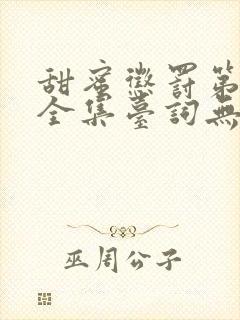 甜蜜懲罰第
全集臺詞無
巫周公子